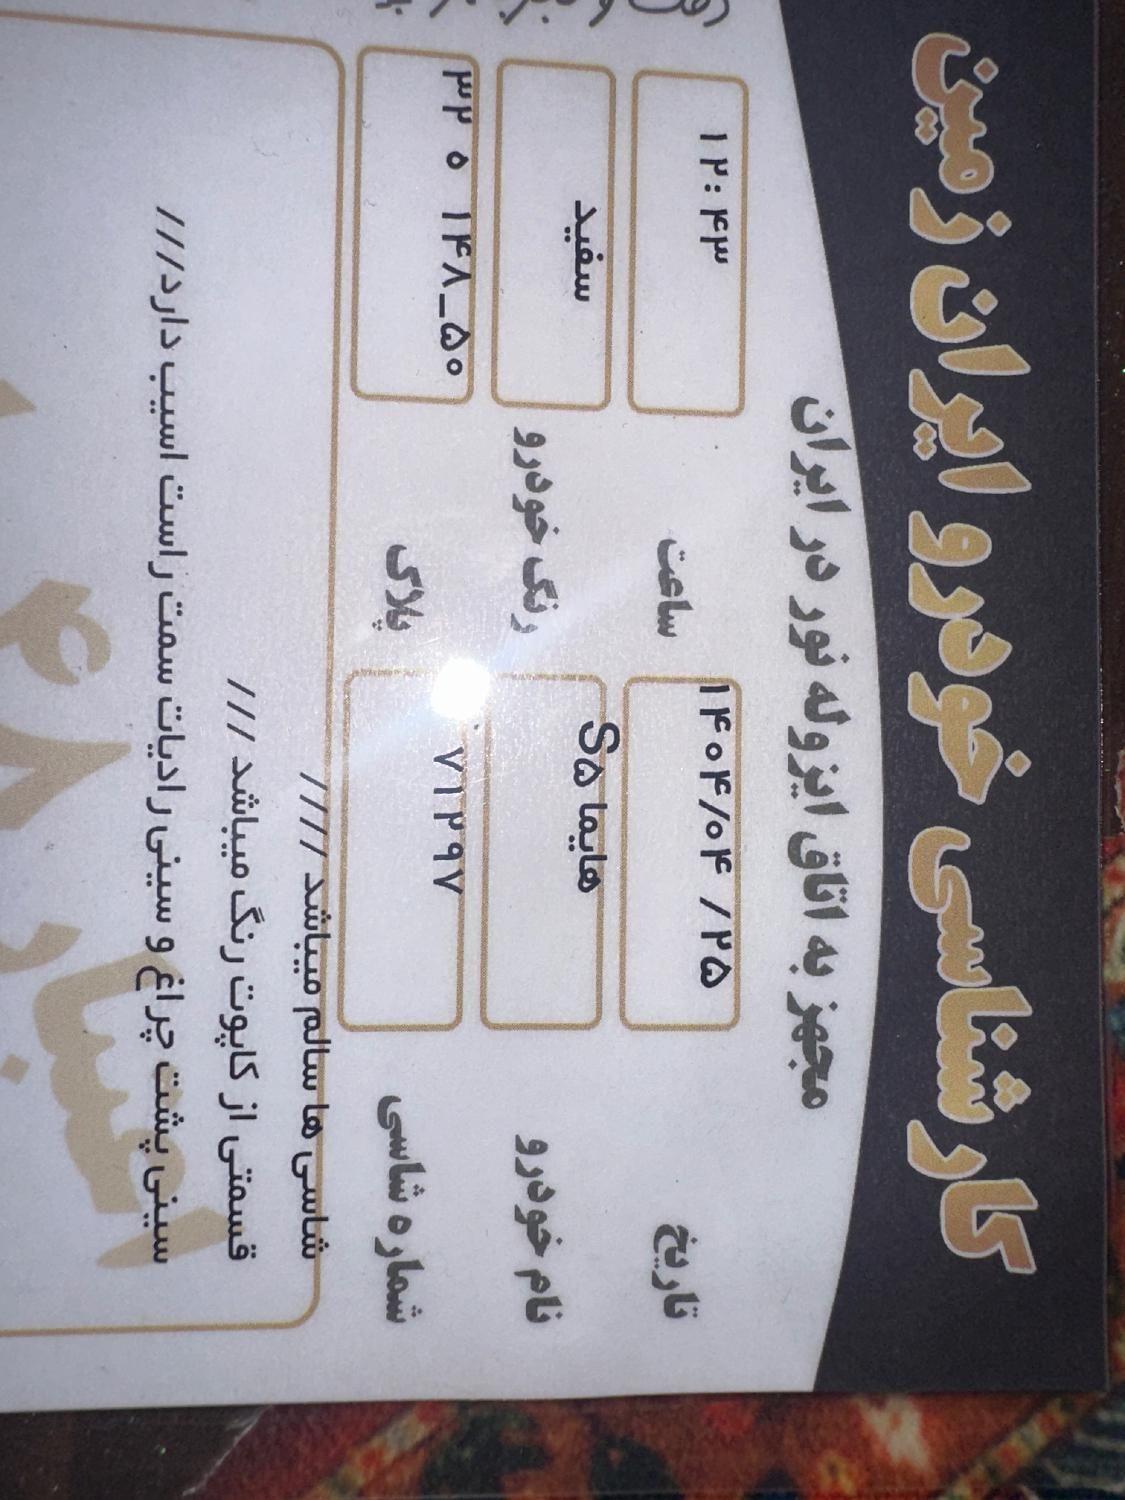 کارشناسی خودرو ایران زمین
مجهز به اتاق ایزوله نور در ایران
تاریخ ۱۴۰۴/۰۴ /۲۵ ساعت ۱۲:۴۳
نام خودرو هایما S۵ رنگ خودرو سفید
شماره شاسی ۷۱۲۹۷ پلاک ۳۲ ۵ ۱۴۸_۵۰
شاسی ها سالم میباشد ////
قسمتی از کاپوت رنگ میباشد ///
سینی پشت چراغ و سینی رادیات سمت راست اسیب دارد///